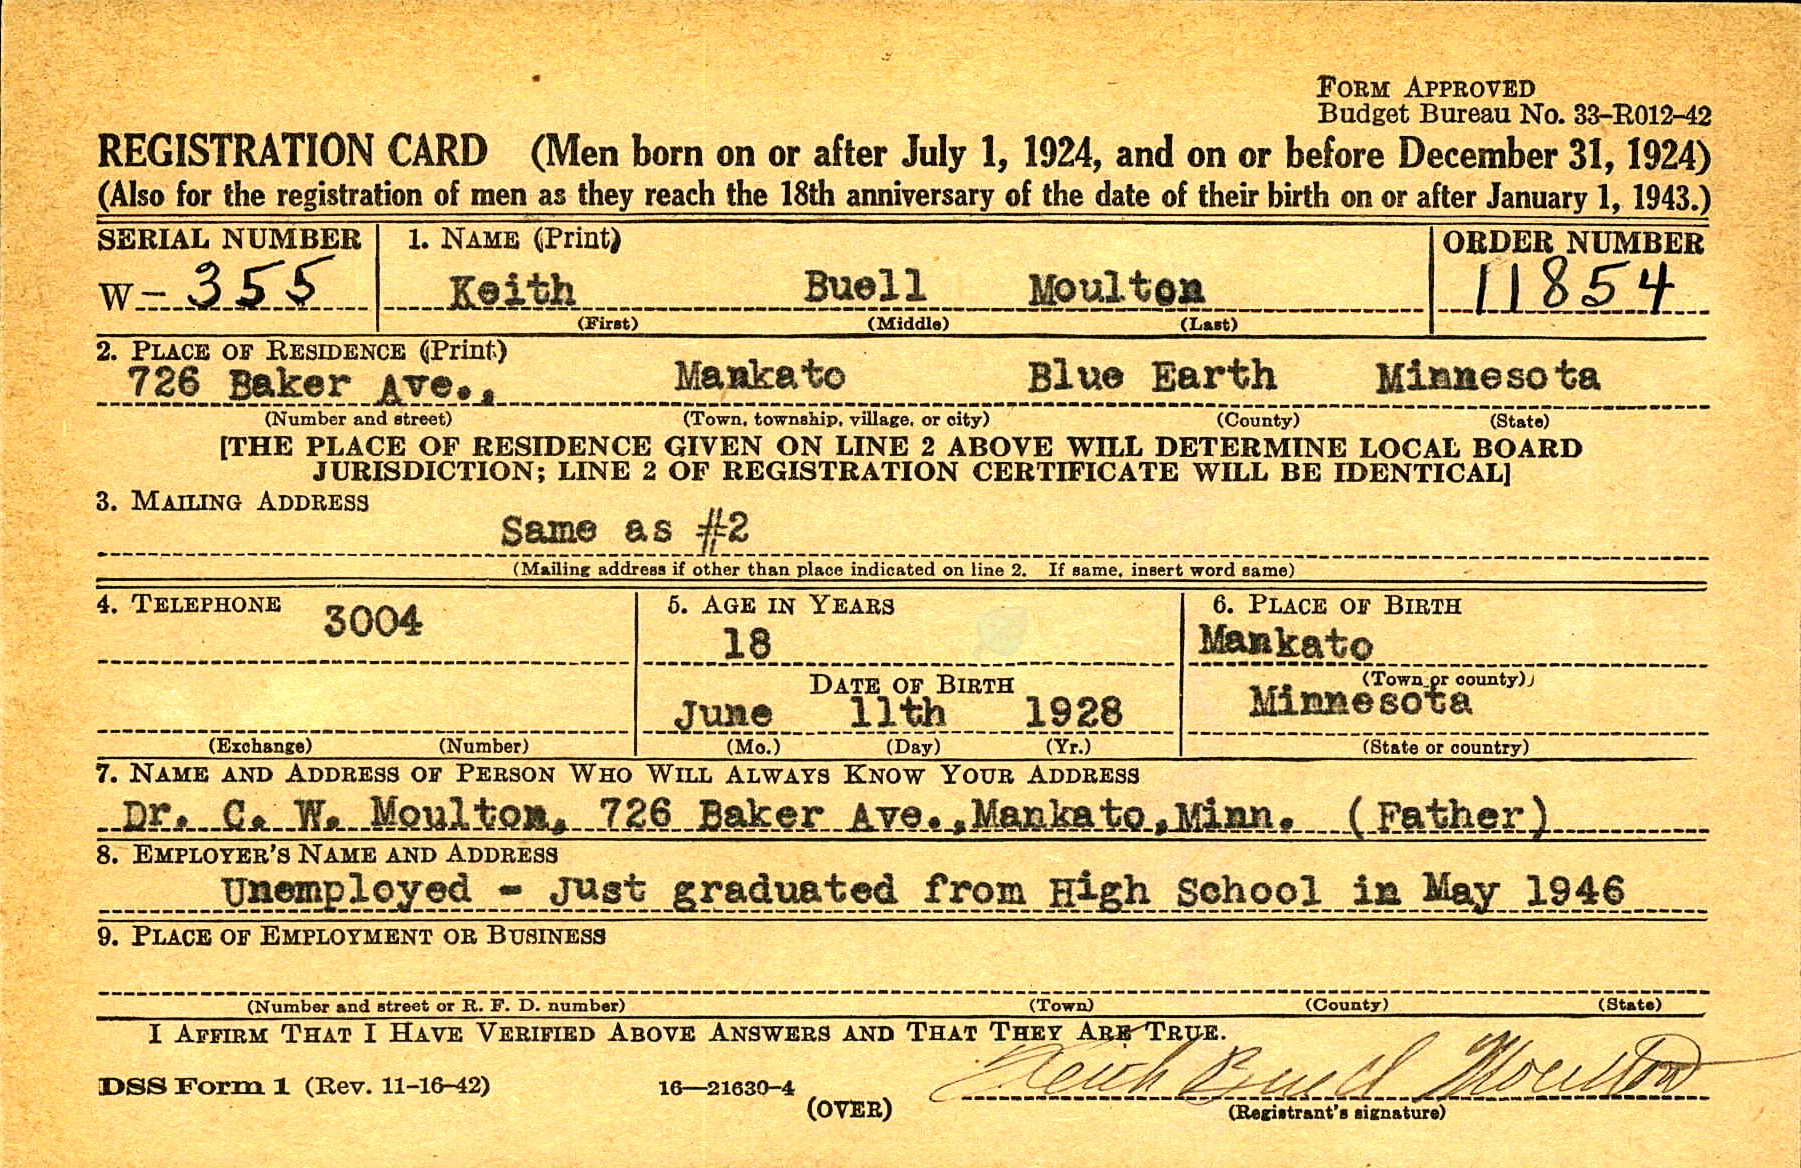 FORM APPROVED
Budget Bureau No. 33-R012-42
REGISTRATION CARD (Men born on or after July 1, 1924, and on or before December 31, 1924)
(Also for the registration of men as they reach the 18th anniversary of the date of their birth on or after January 1, 1943.)
SERIAL NUMBER 1. NAME (Print) ORDER NUMBER
W- 355 Keith Buell Moulton 11854
(First) (Middle) (Last)
2. PLACE OF RESIDENCE (Print)
726 Baker Ave., Mankato Blue Earth Minnesota
(Number and street) (Town, township, village, or city) (County) (State)
[THE PLACE OF RESIDENCE GIVEN ON LINE 2 ABOVE WILL DETERMINE LOCAL BOARD
JURISDICTION; LINE 2 OF REGISTRATION CERTIFICATE WILL BE IDENTICAL]
3. MAILING ADDRESS
Same as #2
(Mailing address if other than place indicated on line 2. If same, insert word same)
4. TELEPHONE 5. AGE IN YEARS 6. PLACE OF BIRTH
3004 18 Mankato
(Town or county)
DATE OF BIRTH
June 11th 1928 Minnesota
(Exchange) (Number) (Mo.) (Day) (Yr.) (State or country)
7. NAME AND ADDRESS OF PERSON WHO WILL ALWAYS KNOW YOUR ADDRESS
Dr. C. W. Moulton, 726 Baker Ave., Mankato, Minn. (Father)
8. EMPLOYER'S NAME AND ADDRESS
Unemployed - Just graduated from High School in May 1946
9. PLACE OF EMPLOYMENT OR BUSINESS
(Number and street or R. F. D. number) (Town) (County) (State)
I AFFIRM THAT I HAVE VERIFIED ABOVE ANSWERS AND THAT THEY ARE TRUE.
DSS Form 1 (Rev. 11-16-42) 16—21630-4 Keith Buell Moulton
(OVER) (Registrant's signature)